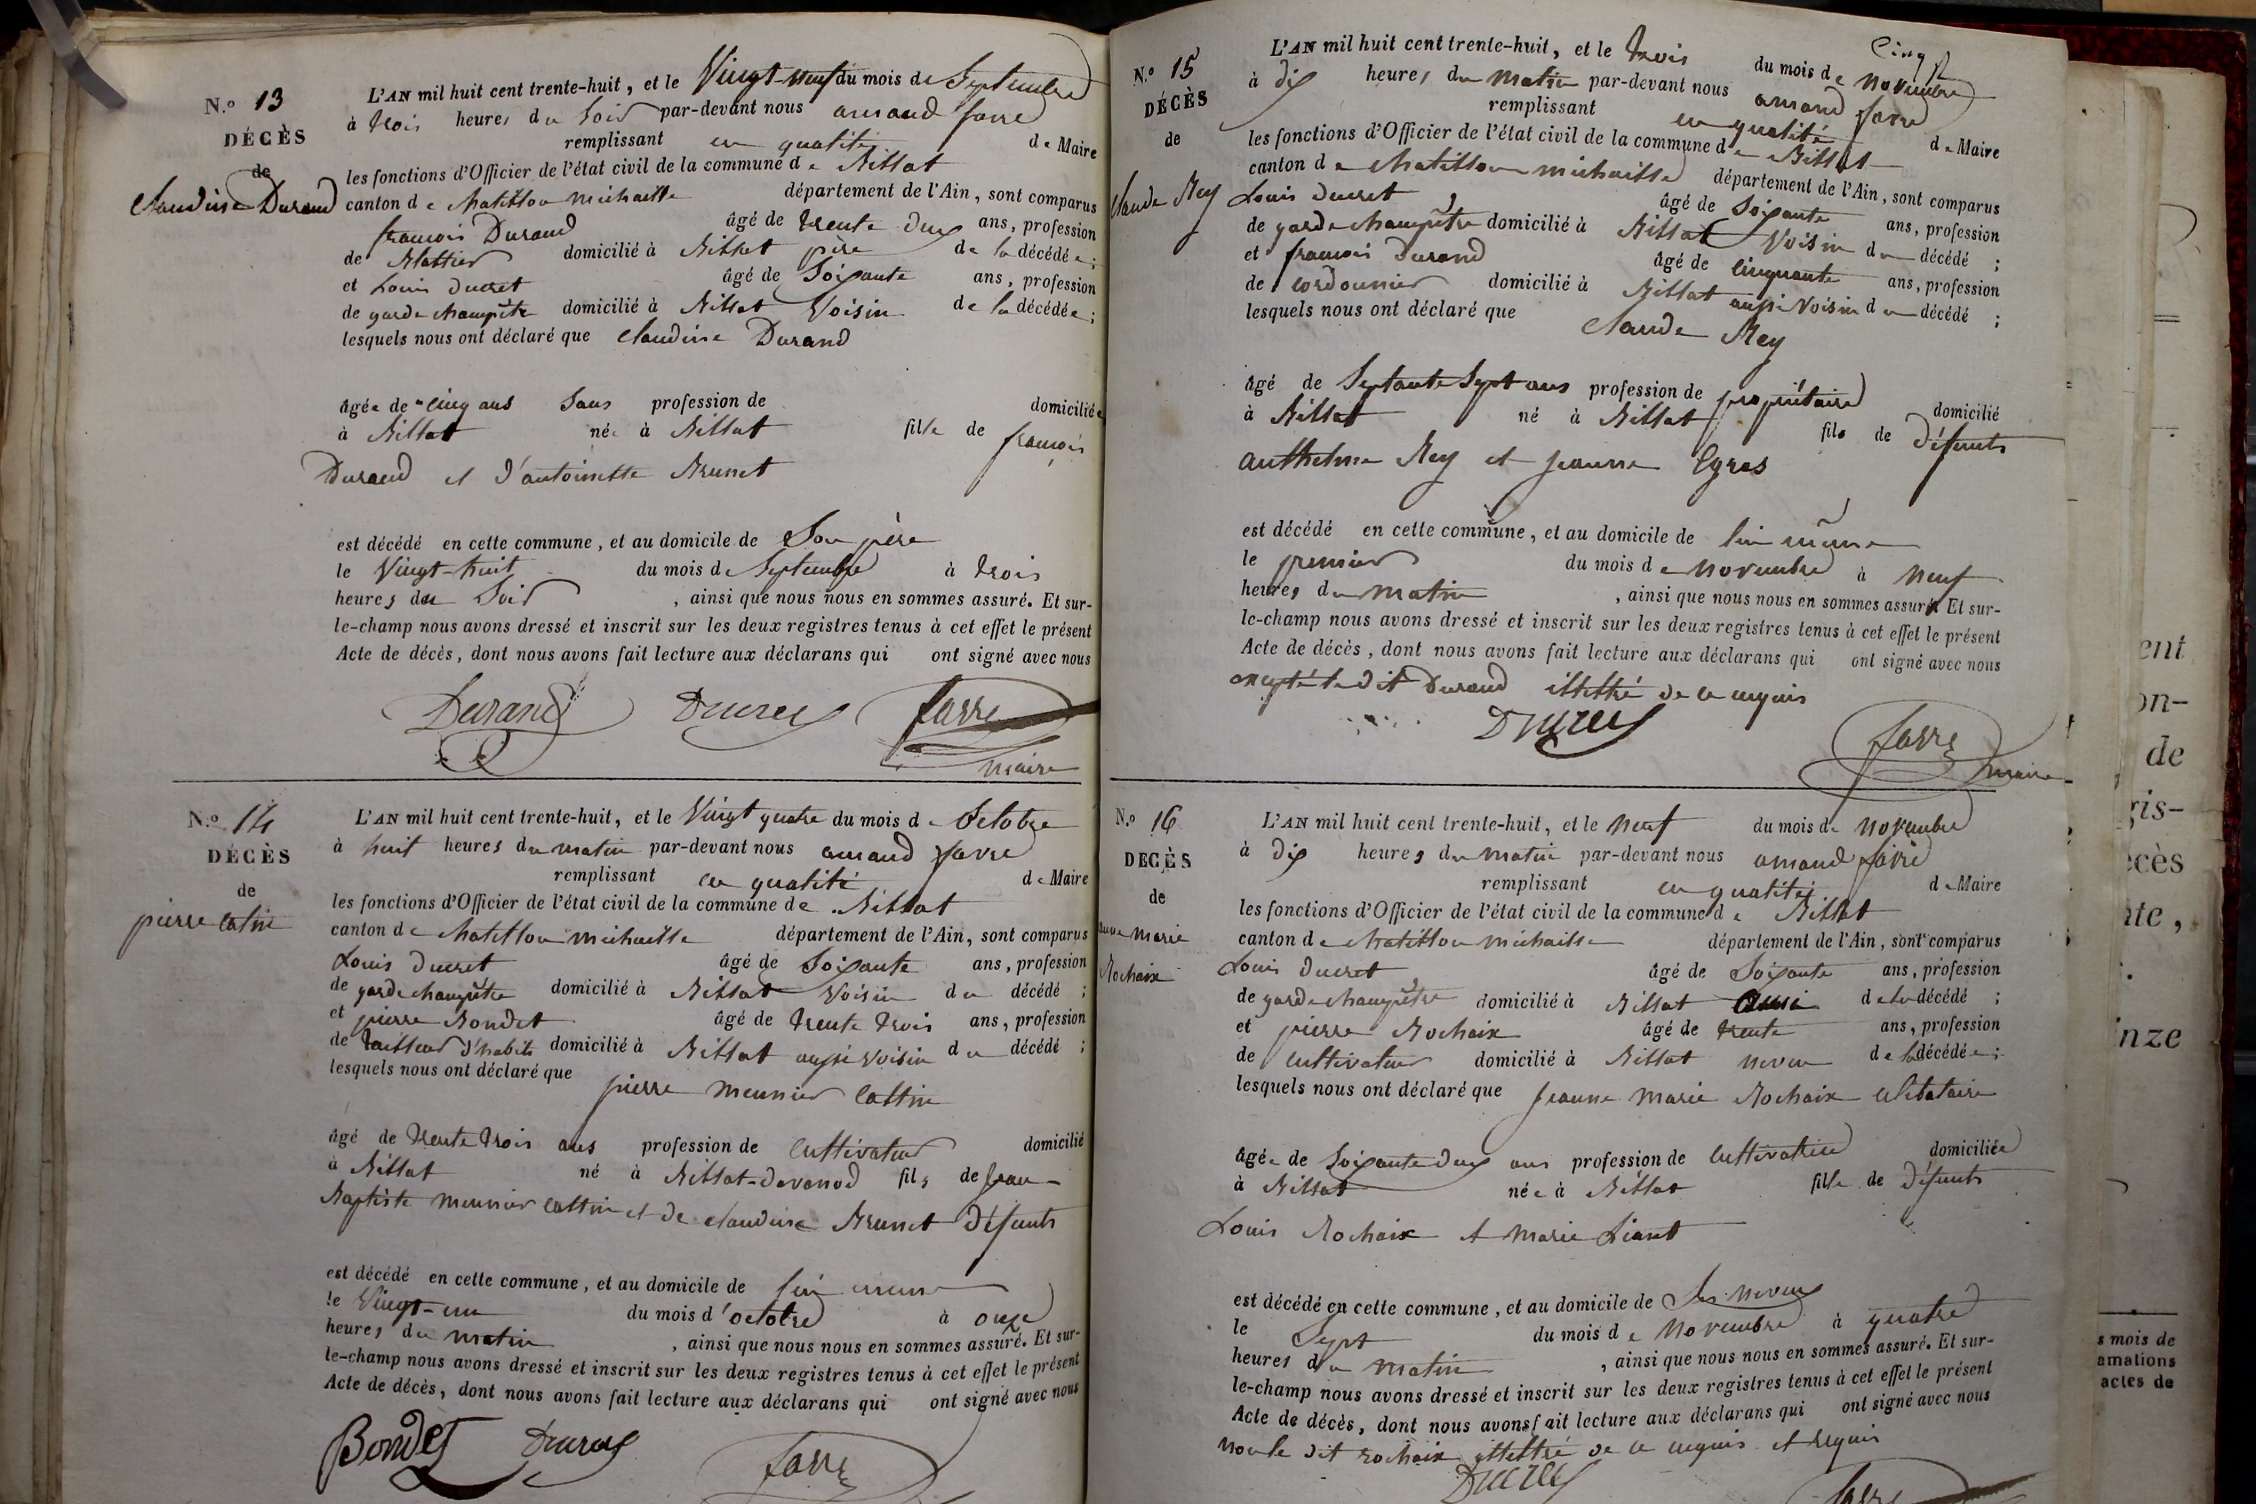 N.º 13
DÉCÈS
de
Claudine Durand
L'AN mil huit cent trente-huit, et le Vingt-neuf du mois de Septembre
à trois heures du soir par-devant nous amand favre
remplissant en qualité de Maire
les fonctions d'Officier de l'état civil de la commune de Billat
canton de Chatillon michaille département de l'Ain, sont comparus
françois Durand âgé de trente deux ans, profession
de domicilié à Billat père de la décédée;
et Louis Ducret âgé de Soixante ans, profession
de garde champêtre domicilié à Billat Voisin de la décédée;
lesquels nous ont déclaré que Claudine Durand
âgée de cinq ans Sans profession de domiciliée
à Billat née à Billat fille de françois
Durand et d'antoinette Brunet
est décédé en cette commune, et au domicile de Son père
le Vingt-huit du mois de Septembre à trois
heures du Soir, ainsi que nous nous en sommes assuré. Et sur-
le-champ nous avons dressé et inscrit sur les deux registres tenus à cet effet le présent
Acte de décès, dont nous avons fait lecture aux déclarans qui ont signé avec nous
Durand Ducret favre
maire
N.º 14
DÉCÈS
de
pierre catin
L'AN mil huit cent trente-huit, et le Vingt quatre du mois d Octobre
à huit heures du matin par-devant nous amand favre
remplissant en qualité de Maire
les fonctions d'Officier de l'état civil de la commune de Billat
canton de Chatillon michaille département de l'Ain, sont comparus
Louis Ducret âgé de Soixante ans, profession
de garde champêtre domicilié à Billat Voisin du décédé;
et pierre Bondet âgé de trente trois ans, profession
de tailleur d'habits domicilié à Billat aussi voisin du décédé;
lesquels nous ont déclaré que
pierre meunier Cattin
âgé de trente trois ans profession de cultivateur domicilié
à Billat né à Billat-davanod fils de Jean
Baptiste meunier cattin et de Claudine Brunet Défunts
est décédé en cette commune, et au domicile de lui meme
le Vingt-un du mois d'octobre à onze
heures du matin, ainsi que nous nous en sommes assuré. Et sur-
le-champ nous avons dressé et inscrit sur les deux registres tenus à cet effet le présent
Acte de décès, dont nous avons fait lecture aux déclarans qui ont signé avec nous
Bondet Ducret favre
N.º 15
DÉCÈS
de
Claude Rey
Cinq
L'AN mil huit cent trente-huit, et le trois du mois de novembre
à dix heures du matin par-devant nous amand favre
remplissant en qualité de Maire
les fonctions d'Officier de l'état civil de la commune de Billat
canton de Chatillon michaille département de l'Ain, sont comparus
Louis Ducret âgé de Soixante ans, profession
de garde champêtre domicilié à Billat Voisin du décédé;
et françois Durand âgé de cinquante ans, profession
de cordonnier domicilié à Billat aussi voisin du décédé;
lesquels nous ont déclaré que Claude Rey
âgé de Septante Sept ans profession de propriétaire domicilié
à Billat né à Billat fils de Défunts
anthelme Rey et Jeanne Egros
est décédé en cette commune, et au domicile de lui même
le premier du mois de novembre à neuf
heures du matin, ainsi que nous nous en sommes assuré. Et sur-
le-champ nous avons dressé et inscrit sur les deux registres tenus à cet effet le présent
Acte de décès, dont nous avons fait lecture aux déclarans qui ont signé avec nous
excepté le dit Durand illettré de ce requis
Ducret favre
maire
N.º 16
DECÈS
de
marie
Rochaix
L'AN mil huit cent trente-huit, et le neuf du mois de novembre
à dix heures du matin par-devant nous amand favre
remplissant en qualité de Maire
les fonctions d'Officier de l'état civil de la commune de Billat
canton de Chatillon michaille département de l'Ain, sont comparus
Louis Ducret âgé de Soixante ans, profession
de garde champêtre domicilié à Billat de la décédé;
et pierre Rochaix âgé de trente ans, profession
de cultivateur domicilié à Billat neveu de la décédée;
lesquels nous ont déclaré que Jeanne marie Rochaix célibataire
âgée de Soixante deux ans profession de cultivatrice domiciliée
à Billat née à Billat fille de Défunts
Louis Rochaix et marie Liant
est décédé en cette commune, et au domicile de Ses neveux
le Sept du mois de Novembre à quatre
heures du matin, ainsi que nous nous en sommes assuré. Et sur-
le-champ nous avons dressé et inscrit sur les deux registres tenus à cet effet le présent
Acte de décès, dont nous avons fait lecture aux déclarans qui ont signé avec nous
non le dit rochaix illettré de ce enquis et requis
Ducret favre
ent
on-
de
gis-
écès
nte,
inze
s mois de
amations
actes de